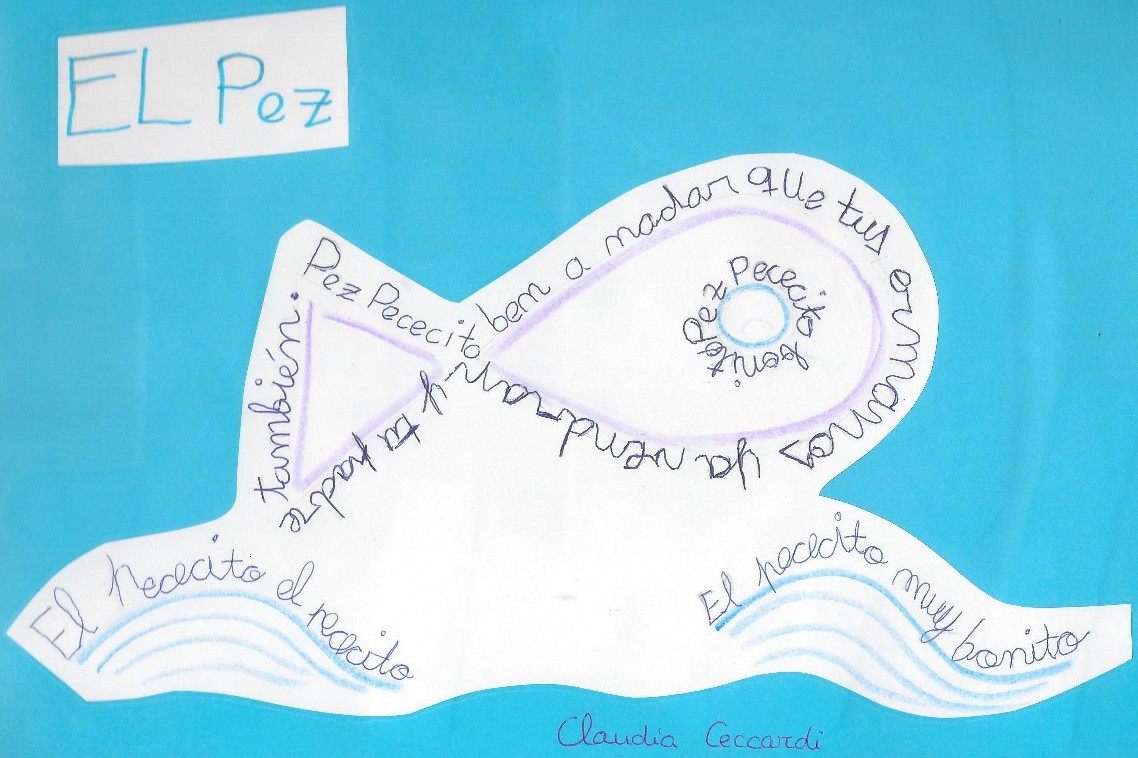 EL Pez
Pez Pececito ben a nadar que tus ermanos ya vendran y tu padre también.
Pez Pececito bonito
El Pececito el pececito
El pececito muy bonito
Claudia Ceccardi